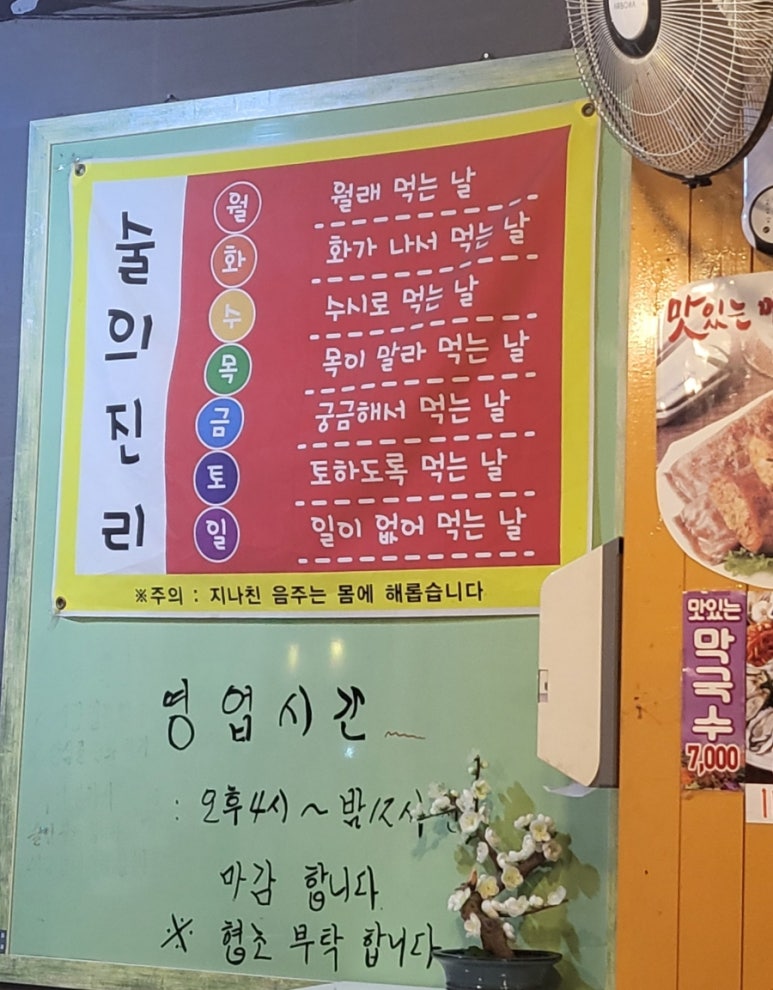 술의 진리
월 월래 먹는 날
화 화가 나서 먹는 날
수 수시로 먹는 날
목 목이 말라 먹는 날
금 궁금해서 먹는 날
토 토하도록 먹는 날
일 일이 없어 먹는 날
※주의 : 지나친 음주는 몸에 해롭습니다
영업시간
: 오후4시 ~ 밤12시
마감 합니다
※ 협조 부탁 합니다
맛있는
맛있는
막국수
7,000